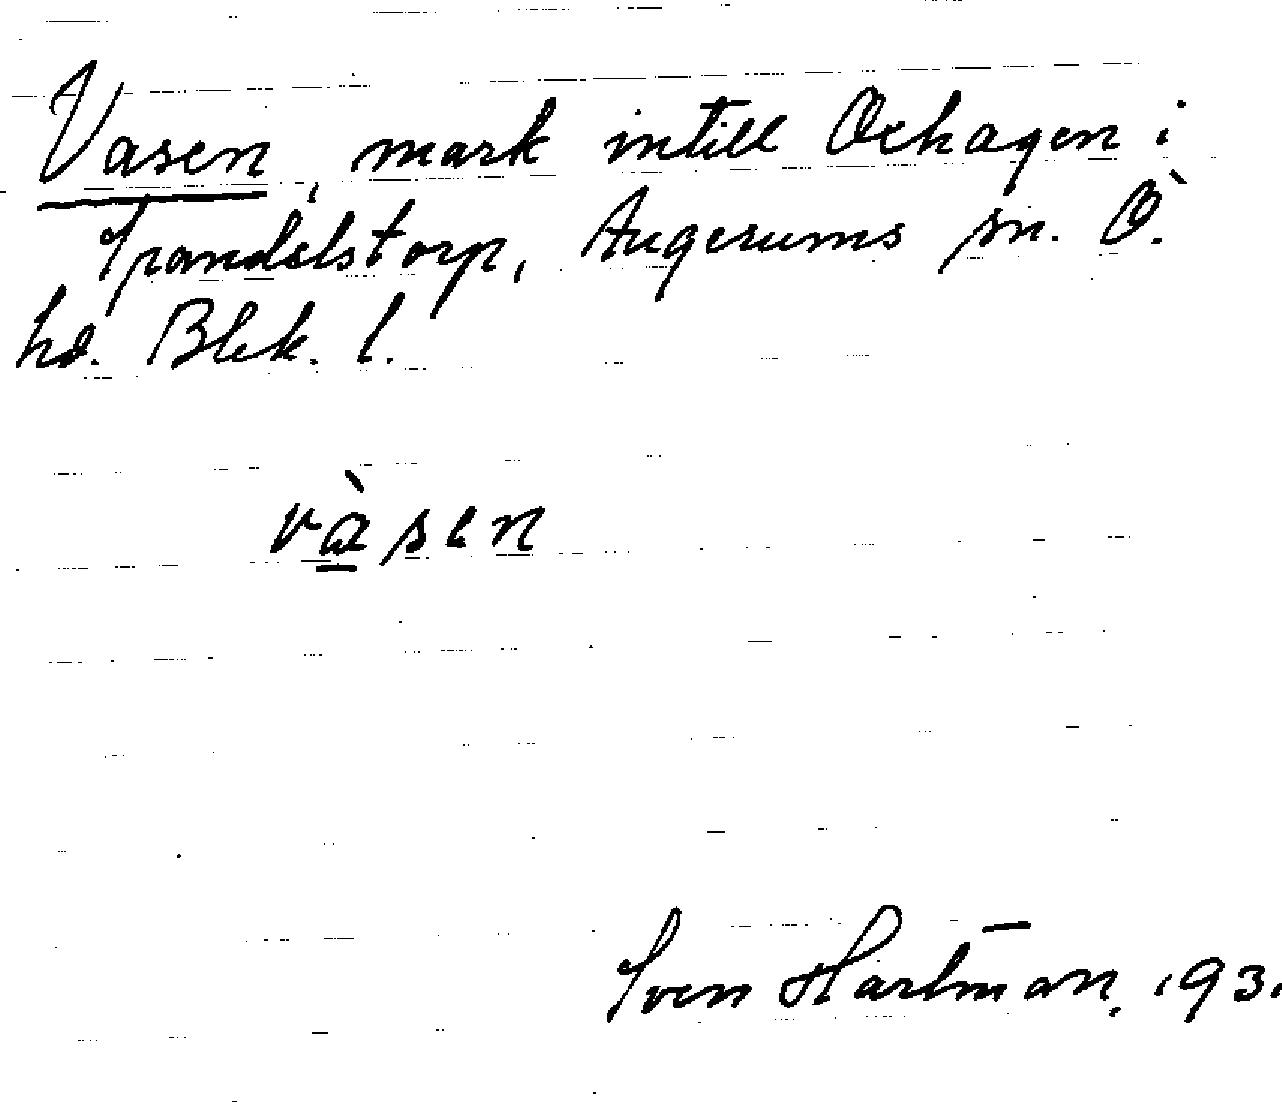 Vasen, mark intill Oxhagen i
Spandelstorp, Augerums sn. Ö.
hd. Blek. l.
vàsen
Sven Hartman. 193